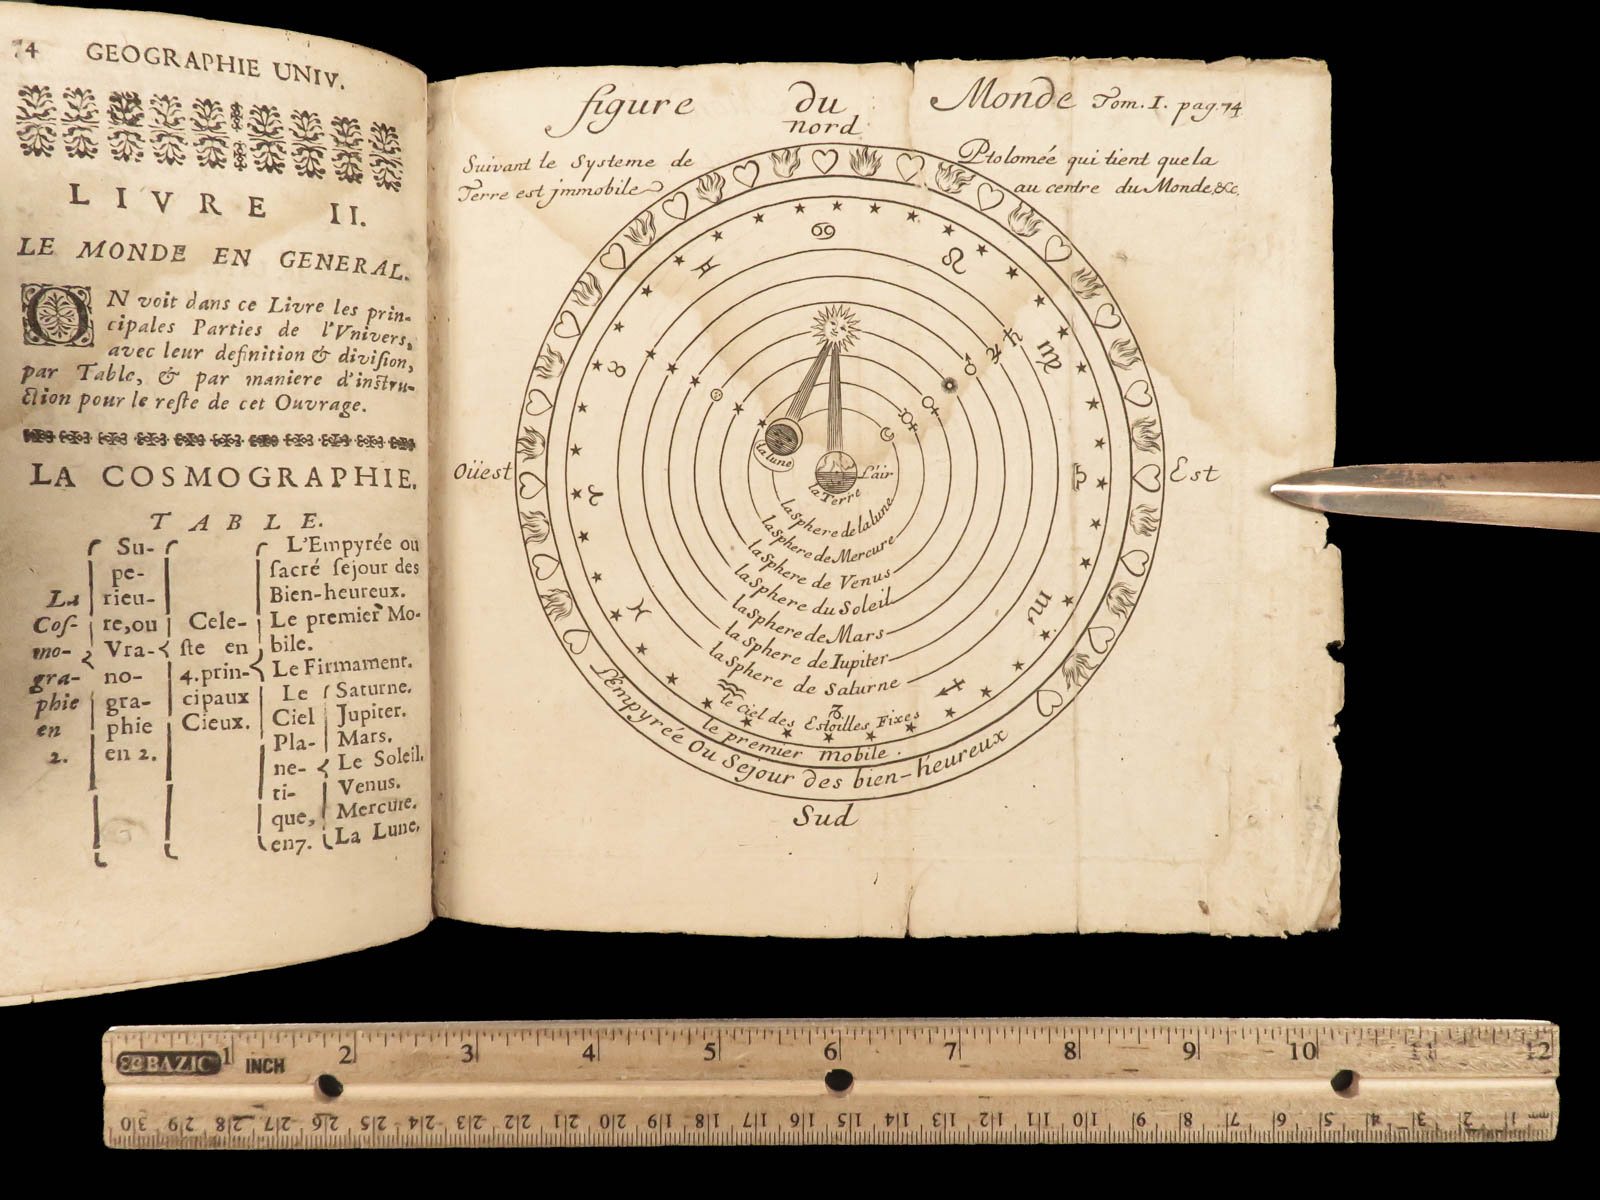 74 GEOGRAPHIE UNIV.
LIVRE II.
LE MONDE EN GENERAL.
ON voit dans ce Livre les prin-
cipales Parties de l'Vnivers,
avec leur definition & division,
par Table, & par maniere d'instru-
ction pour le reste de cet Ouvrage.
LA COSMOGRAPHIE.
TABLE.
La
Cos-
mo-
gra-
phie
en
2.
Su-
pe-
rieu-
re, ou
Vra-
no-
gra-
phie
en 2.
Cele-
ste en
4. prin-
cipaux
Cieux.
L'Empyrée ou
sacré sejour des
Bien-heureux.
Le premier Mo-
bile.
Le Firmament.
Le
Ciel
Pla-
ne-
ti-
que,
en 7.
Saturne.
Jupiter.
Mars.
Le Soleil.
Venus.
Mercure.
La Lune,
figure du Monde Tom. I. pag. 74
nord
Suivant le Systeme de Ptolomée qui tient que la
Terre est jmmobile au centre du Monde, &c.
Oüest
Est
la lune
L'air
la Terre
la Sphere de la lune
la Sphere de Mercure
la Sphere de Venus
la Sphere du Soleil
la Sphere de Mars
la Sphere de Iupiter
la Sphere de Saturne
le Ciel des Estoilles Fixes
le premier mobile.
L'Empyrée Ou Sejour des bien-heureux
Sud
BAZIC 1 INCH 2 3 4 5 6 7 8 9 10 11 12
30 29 28 27 26 25 24 23 22 21 20 19 18 17 16 15 14 13 12 11 10 9 8 7 6 5 4 3 2 1 mm